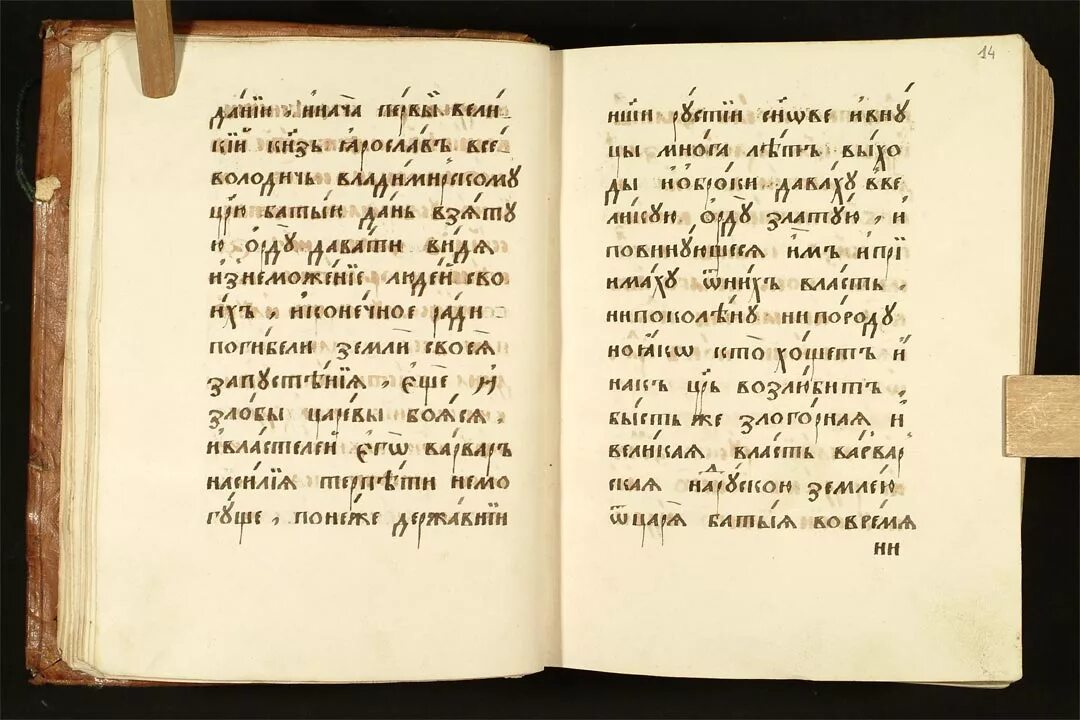 данїи, и нача первы́й вели
кїй кн҃зь ꙗрославъ все
володичь владимирскому
цр҃ю батыю дань в зѧту
ю орду давати видѧ
изнеможенїе людей сво
ихъ, и конечное ради
погибели земли своеѧ
запустѣнїѧ, еще и
злобы царевы боѧсѧ,
и властелей егѡ варваръ
насилїѧ терпѣти немо
гуще, понеже державнїи
14
иши рустїи сн҃ове и вну
цы многа лѣтъ выхо
ды и оброки даваху в ве
ликую орду златую, и
повинующесѧ имъ и прї
имаху ѿ нихъ власть,
ни по колѣну ни по роду
но ꙗкѡ кто хощетъ и
какъ цр҃ь возлюбитъ,
бысть же злогорнаѧ и
великаѧ власть варвар
скаѧ на рускою землею
д
ѿ царѧ батыѧ во времѧ
ни